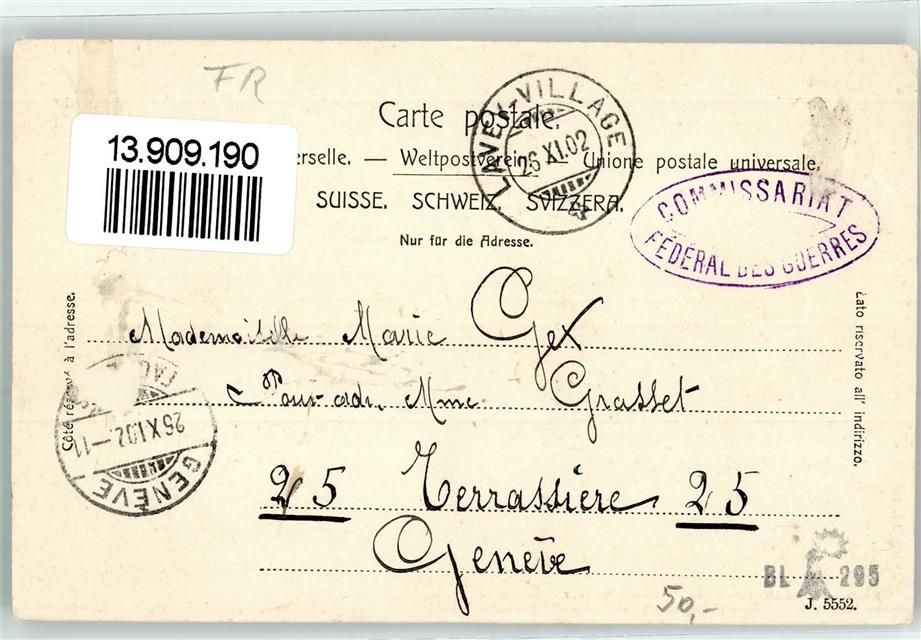 FR
LAVEY-VILLAGE
26 XI.02
Carte postale.
13.909.190
erselle. — Weltpostverein. — Unione postale universale.
SUISSE. SCHWEIZ. SVIZZERA.
COMMISSARIAT
FÉDÉRAL DES GUERRES
Nur für die Adresse.
Côté réservé à l'adresse.
Lato riservato all' indirizzo.
Mademoiselle Marie Gex
Pour adr. Mme Grasset
26 XI.02-11
GENÈVE
25 Terrassière 25
Genève
BL 295
J. 5552.
50,-